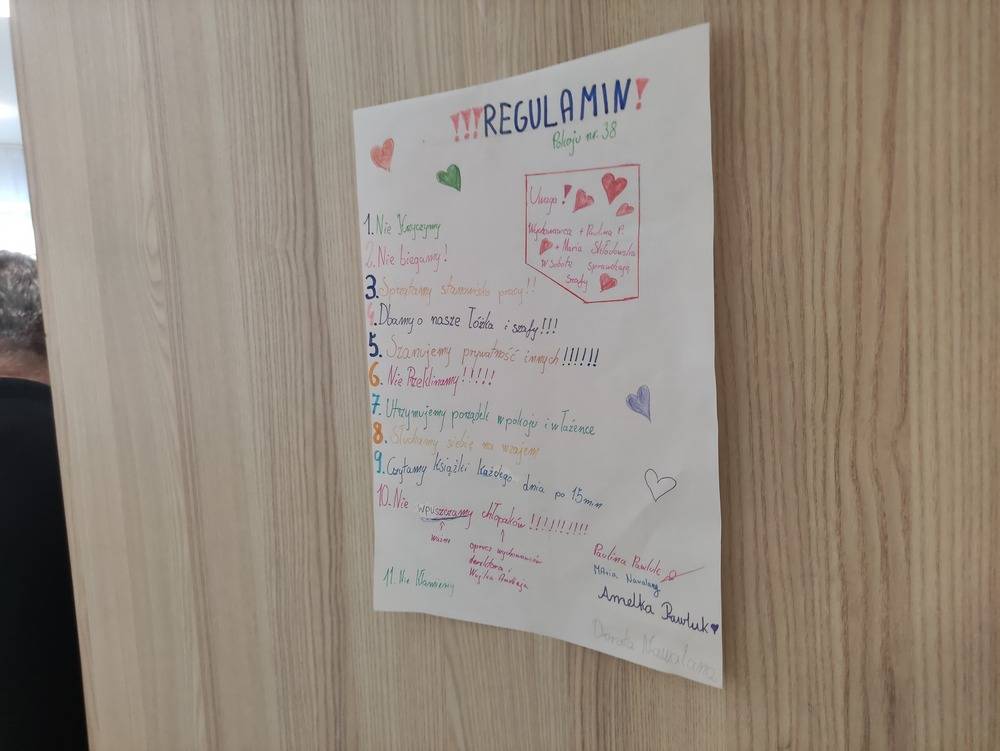 !!!REGULAMIN!
Pokoju nr. 38
Uwaga!
Wychowawca + Paulina P.
+ Maria Skłodowska
w Sobote sprawdzają
szafy
1. Nie Krzyczymy
2. Nie biegamy!
3. Sprzątamy stanowisko pracy!!
4. Dbamy o nasze łóżka i szafy!!!
5. Szanujemy prywatność innych!!!!!!
6. Nie Przeklinamy!!!!!
7. Utrzymujemy porządek w pokoju i w łazience
8. Słuchamy siebie na wzajem
9. Czytamy Książki Każdego dnia po 15min
10. Nie wpuszczamy chłopaków!!!!!!!!!!
ważne
oprócz wychowawców
dyrektora i
Wujka Andrzeja
11. Nie Kłamiemy
Paulina Pawluk
MAria Nawalany
Amelka Pawluk
Dorota